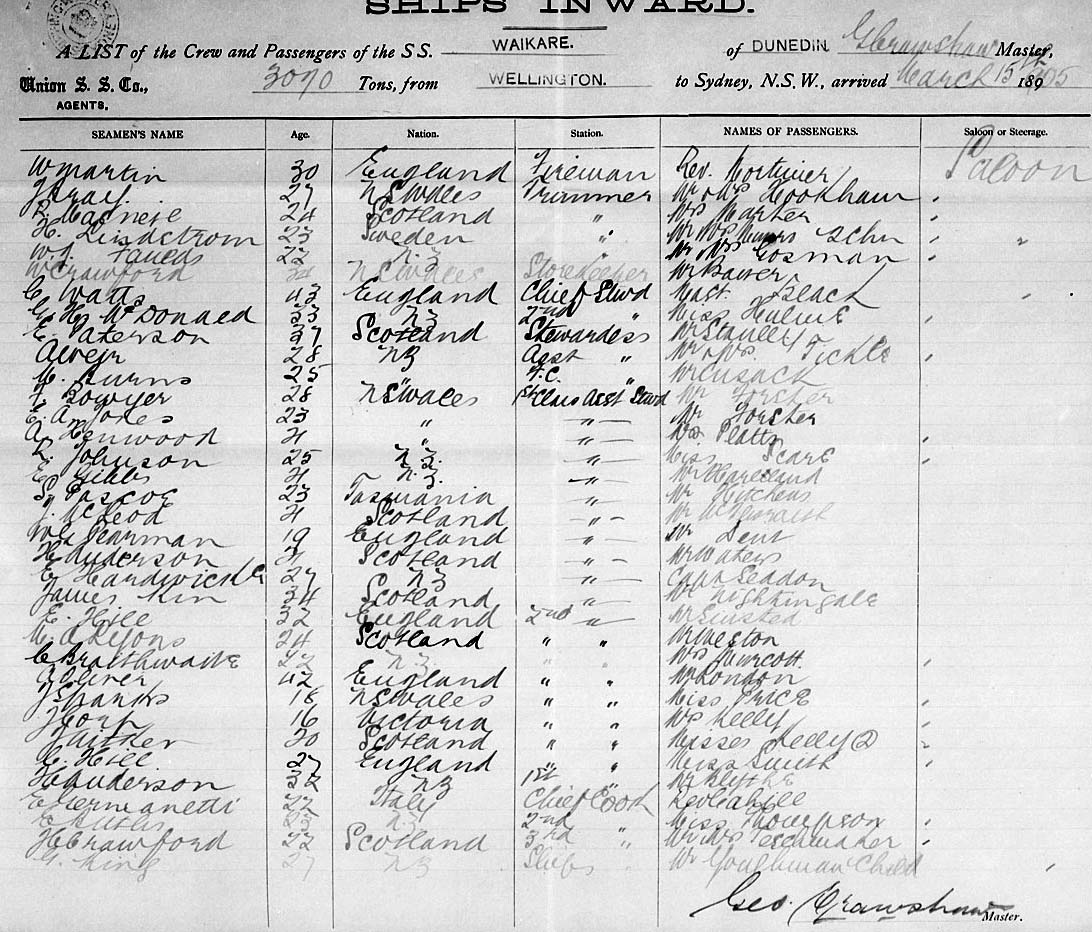 SHIPS INWARD.
A LIST of the Crew and Passengers of the SS. WAIKARE. of DUNEDIN, G Crawshaw Master,
Union S. S. Co., 3070 Tons, from WELLINGTON. to Sydney, N.S.W., arrived March 15th 1895
AGENTS.
SEAMEN'S NAME Age. Nation. Station. NAMES OF PASSENGERS. Saloon or Steerage.
W Martin 30 England Fireman Rev. Mortimer Saloon
J Gray. 27 N S Wales Trimmer Mr & Mrs Hookham "
24 Scotland " Mrs Marter "
H. Lindstrom 23 Sweden " Mr Mrs " "
W. J. 22 N.Z " Mr & Mrs Gosman "
W Crawford N S Wales Storekeeper Mr Bauer
C Watts 43 England Chief Stwd Mast. Black "
McDonald 33 N Z 2nd " Miss Hulme "
E Paterson 37 Scotland Stewardess Mr Stanley
A Weir 28 N Z Asst " Mr & Mrs Tickle "
M. Burns 25 " F.C. " Mr Cusack
F Bowyer 28 N S Wales 1st Class Asst Stwd Mr Forster
E. A. Jones 23 " " Mr Forster
A Henwood 21 " " Mrs Platts "
R. Johnson 25 N.Z. " Miss Scare "
E Gibbs 21 N.Z. " Mr
S Pascoe 23 Tasmania " Mr Hitchens
J. McLeod 21 Scotland " Mr
W G Pearman 19 England " Mr Dent
H Anderson 21 Scotland " Mr Waters
E Hardwicke 27 N Z " Capt Seddon
James Kin 34 Scotland " Mr Nightingale
E. Hill 32 England 2nd " Mr
24 Scotland " " Mr Weston
C Braithwaite 22 N.Z " " Mrs Murcott "
A Oliver 42 England " " Mr London
J Shanks 18 N S Wales " " Miss Price "
16 Victoria " " Mrs Kelly "
Aitken 20 Scotland " " Misses Kelly 2 "
C. Hill 27 England " " Miss Smith "
H Anderson 32 N Z 1st " Mr Blythe
22 Italy Chief Cook Rev Cahill
23 N Z 2nd " Miss Thompson "
H Crawford 22 Scotland 3rd " Mr & Mrs Teschmaker "
G. King 27 N Z Ships Child "
Geo. Crawshaw
Master.